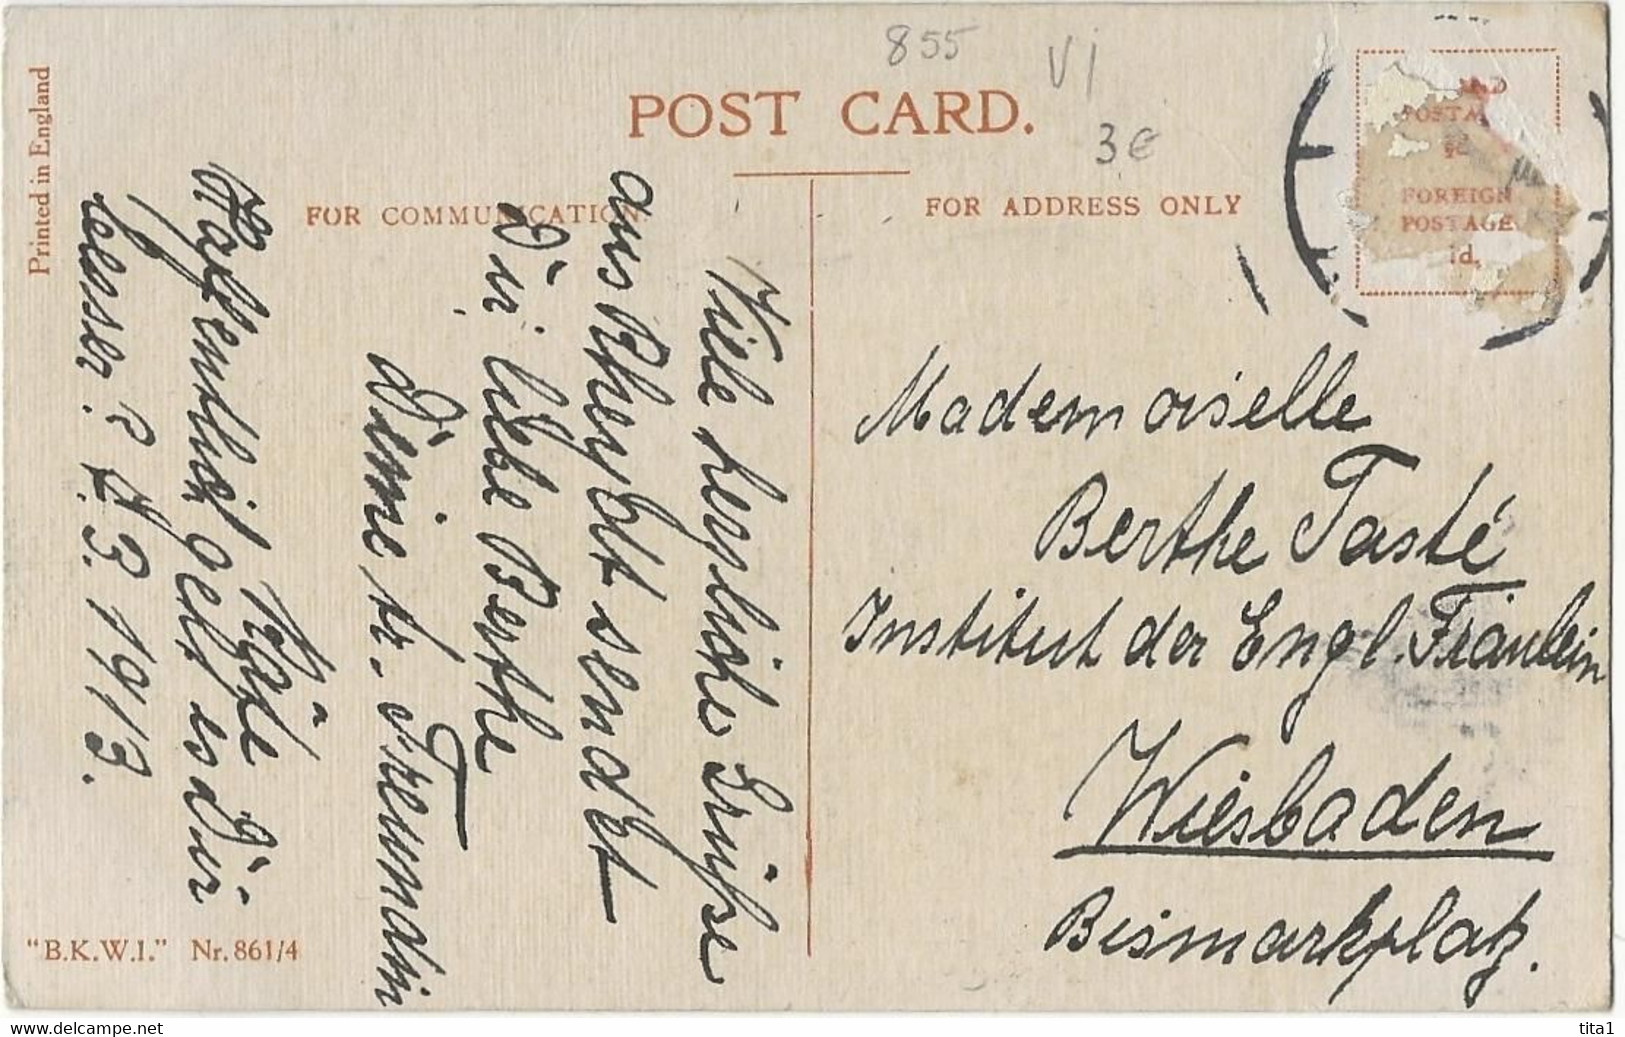 855 VI
3€
POST CARD.
FOR COMMUNICATION
FOR ADDRESS ONLY
POSTA
½d
FOREIGN
POSTAGE
1d.
Printed in England
Viele herzliche Grüße
aus Rheydt sendet
Dir liebe Berthe
Deine tr. Freundin
Käthe
Hoffentlich geht es Dir
besser? d. 3. 1913.
Mademoiselle
Berthe Tasté
Institut der Engl. Fräulein
Wiesbaden
Bismarkplatz.
"B.K.W.I." Nr. 861/4
www.delcampe.net
tita1